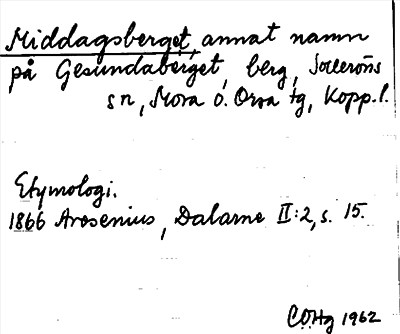 Middagsberget, annat namn
på Gesundaberget, berg, Solleröns
sn, Mora o. Orsa tg, Kopp.l.
Etymologi.
1866 Arosenius, Dalarne II:2, s. 15.
COHg 1962